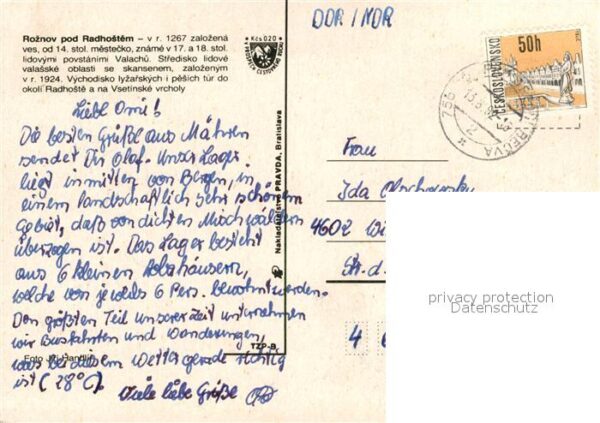 Rožnov pod Radhoštěm – v r. 1267 založená
ves, od 14. stol. městečko, známé v 17. a 18. stol.
lidovými povstáními Valachů. Středisko lidové
valašské oblasti se skansenem, založeným
v r. 1924. Východisko lyžařských i pěších túr do
okolí Radhoště a na Vsetínské vrcholy
Kčs 0,20
Liebe Omi!
Die besten Grüße aus Mähren
sendet Dir Olaf. Unser Lager
liegt inmitten von Bergen, in
einem landschaftlich sehr schönem
Gebiet, daß von dichten Mischwäldern
überzogen ist. Das Lager besteht
aus 6 kleinen Holzhäusern,
welche von jeweils 6 Pers. bewohnt werden.
Den größten Teil unserer Zeit unternehmen
wir Busfahrten und Wanderungen,
was bei diesem Wetter gerade richtig
ist (28°C). Viele liebe Grüße
Foto Jiří
TZP-B
Nakladateľstvo PRAVDA, Bratislava
DDR / NDR
50h
ČESKOSLOVENSKO
756
2
Frau
Ida
4602
Str. d.
4 6
privacy protection
Datenschutz